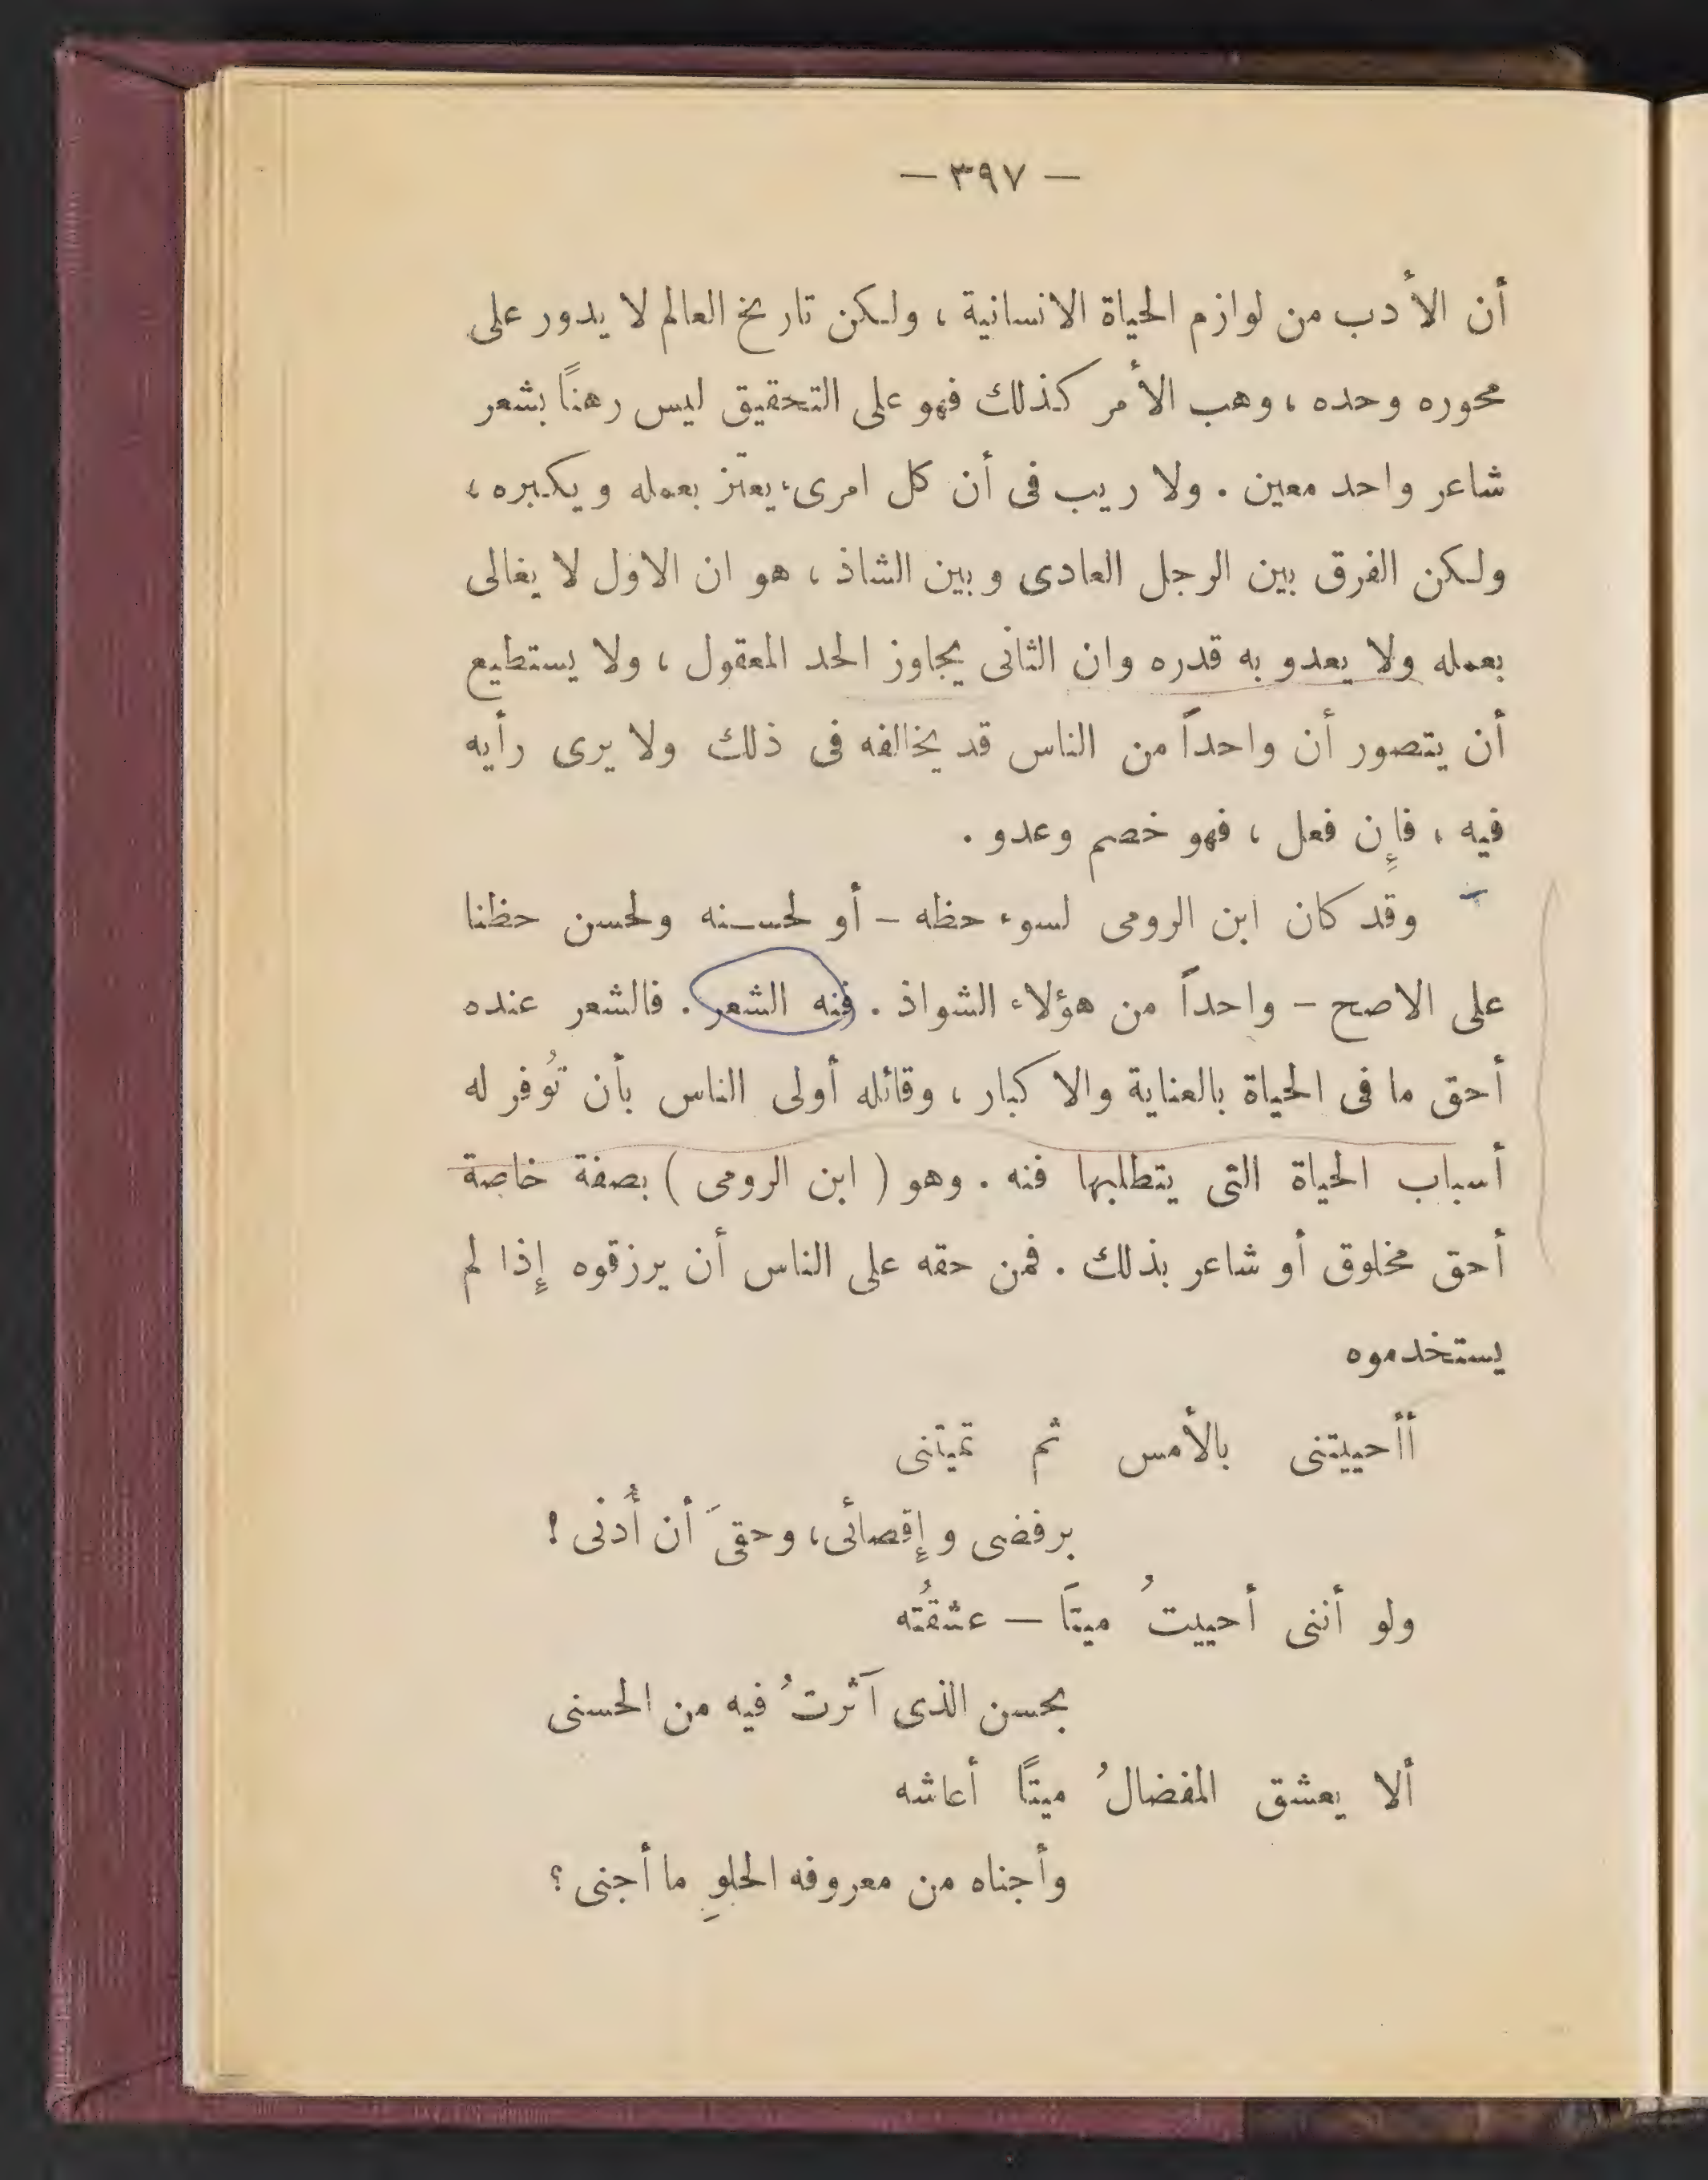 — ٣٩٧ —
أن الأدب من لوازم الحياة الانسانية ، ولكن تاريخ العالم لا يدور على
محوره وحده ، وهب الأمر كذلك فهو على التحقيق ليس رهنًا بشعر
شاعر واحد معين . ولا ريب فى أن كل امرىء يعتز بعمله ويكبره ،
ولكن الفرق بين الرجل العادى وبين الشاذ ، هو ان الاول لا يغالى
بعمله ولا يعدو به قدره وان الثانى يجاوز الحد المعقول ، ولا يستطيع
أن يتصور أن واحداً من الناس قد يخالفه فى ذلك ولا يرى رأيه
فيه ، فإن فعل ، فهو خصم وعدو .
وقد كان ابن الرومى لسوء حظه – أو لحسنه ولحسن حظنا
على الاصح – واحداً من هؤلاء الشواذ . فنه الشعر . فالشعر عنده
أحق ما فى الحياة بالعناية والاكبار ، وقائله أولى الناس بأن تُوفر له
أسباب الحياة التى يتطلبها فنه . وهو ( ابن الرومى ) بصفة خاصة
أحق مخلوق أو شاعر بذلك . فمن حقه على الناس أن يرزقوه إذا لم
يستخدموه
أأحييتنى بالأمس ثم تميتنى
برفضى وإقصائى، وحقىَ أن أُدنى !
ولو أننى أحييتُ ميتًا — عشقتُه
بحسن الذى آثرتُ فيه من الحسنى
ألا يعشق المفضالُ ميتًا أعاشه
وأجناه من معروفه الحلوِ ما أجنى ؟